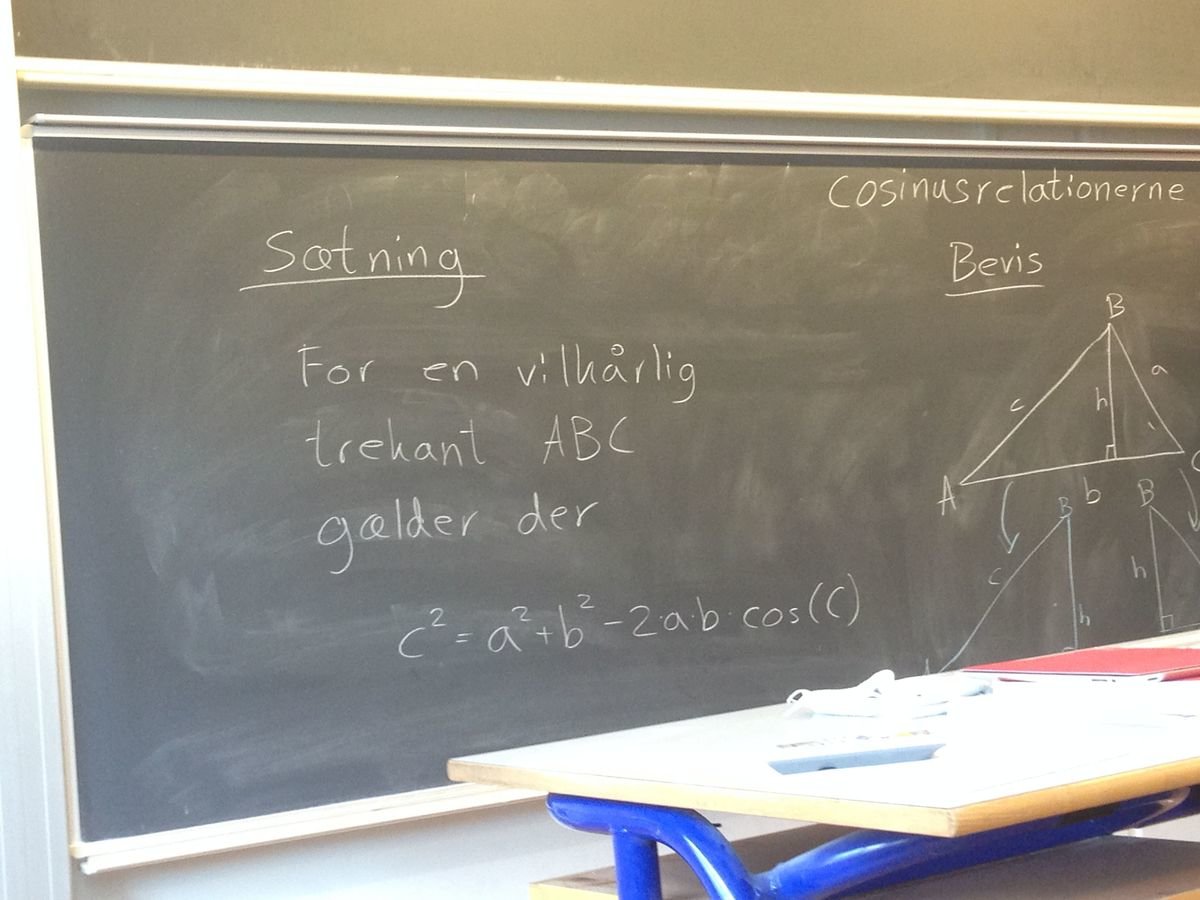 Cosinusrelationerne
Sætning
For en vilkårlig
trekant ABC
gælder der
c² = a² + b² - 2·a·b·cos(C)
Bevis
B
c
h
a
A
b
C
B
c
h
B
h